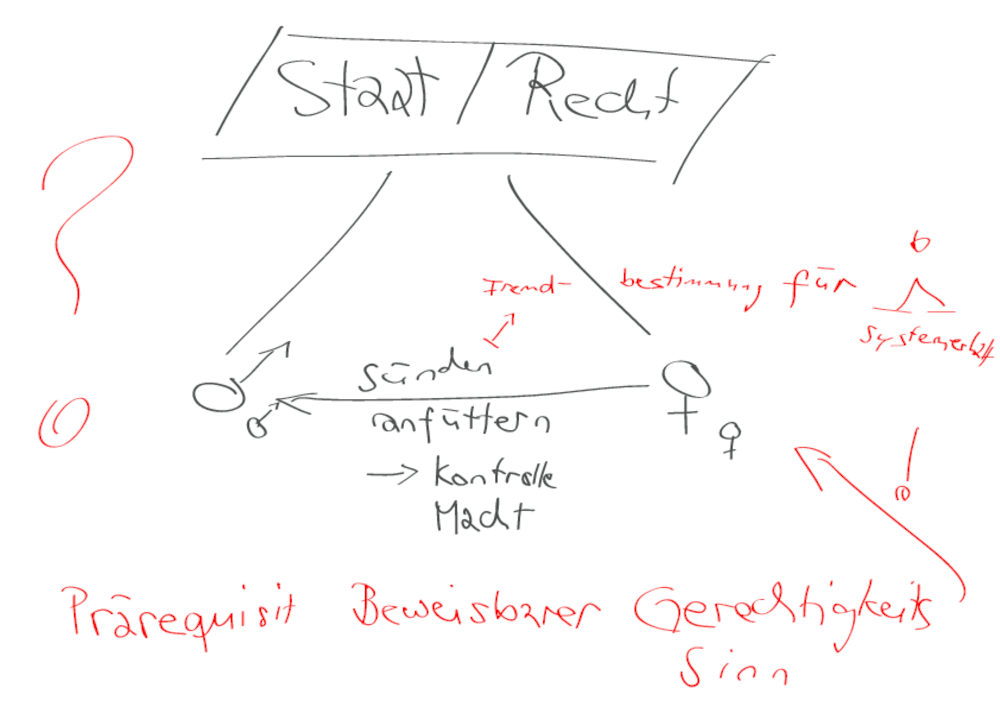 Staat / Recht
Fremd- bestimmung für
Systemerhalt
Sünden
anfüttern
→ Kontrolle
Macht
Prärequisit Beweisbarer Gerechtigkeits
Sinn